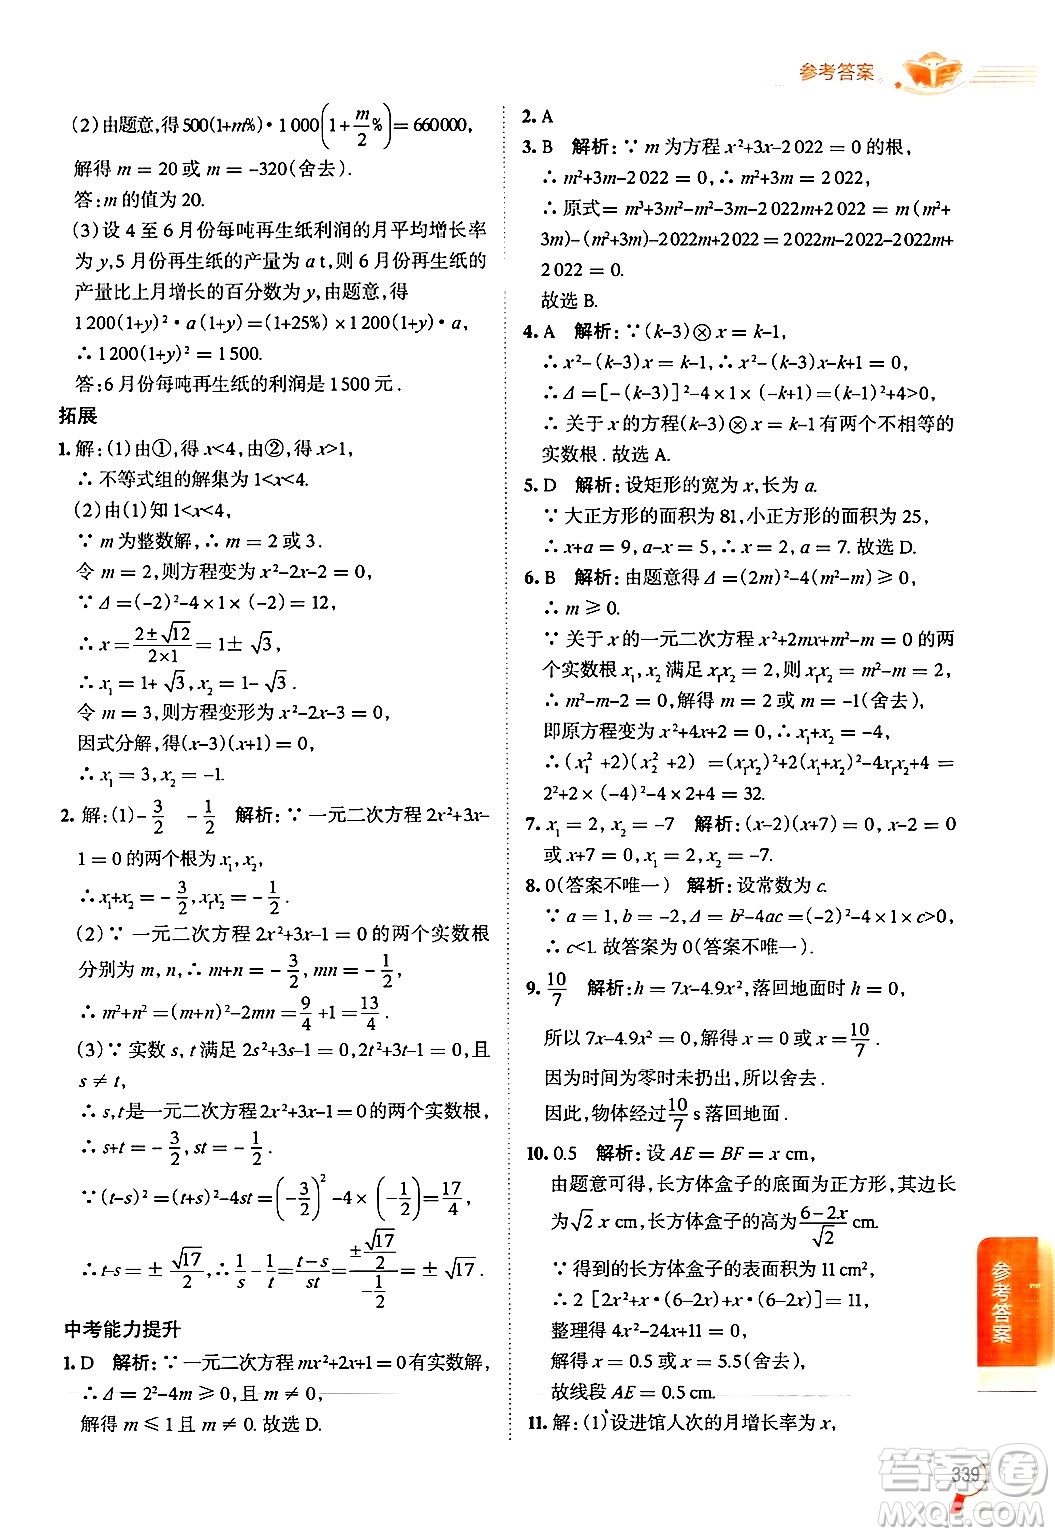 参考答案
(2)由题意,得500(1+m%)·1 000(1+m/2%)=660000,
解得 m = 20或 m = -320(舍去).
答:m 的值为 20.
(3)设 4 至 6 月份每吨再生纸利润的月平均增长率
为 y,5 月份再生纸的产量为 a t,则 6 月份再生纸的
产量比上月增长的百分数为 y,由题意,得
1 200(1+y)²·a(1+y)=(1+25%)×1 200(1+y)·a,
∴1 200(1+y)²=1 500.
答:6月份每吨再生纸的利润是1500元.
拓展
1.解:(1)由①,得 x<4,由②,得 x>1,
∴不等式组的解集为 1<x<4.
(2)由(1)知 1<x<4,
∵ m 为整数解,∴ m = 2 或 3.
令 m = 2,则方程变为 x²-2x-2 = 0,
∵Δ=(-2)²-4×1×(-2)=12,
∴x=(2±√12)/(2×1)=1±√3,
∴x₁=1+√3,x₂=1-√3.
令 m = 3,则方程变形为 x²-2x-3 = 0,
因式分解,得(x-3)(x+1)=0,
∴x₁=3,x₂=-1.
2. 解:(1)-3/2 -1/2 解析:∵一元二次方程2x²+3x-
1=0的两个根为x₁,x₂,
∴x₁+x₂=-3/2,x₁x₂=-1/2.
(2)∵一元二次方程 2x²+3x-1=0的两个实数根
分别为 m,n,∴m+n=-3/2,mn=-1/2,
∴m²+n²=(m+n)²-2mn=9/4+1=13/4.
(3)∵实数 s, t 满足 2s²+3s-1=0,2t²+3t-1=0,且
s ≠ t,
∴s,t是一元二次方程2x²+3x-1=0的两个实数根,
∴s+t=-3/2,st=-1/2.
∵(t-s)²=(t+s)²-4st=(-3/2)²-4×(-1/2)=17/4,
∴t-s=±√17/2,∴1/s-1/t=(t-s)/st=(±√17/2)/(-1/2)=±√17.
中考能力提升
1. D 解析:∵一元二次方程 mx²+2x+1=0有实数解,
∴Δ=2²-4m≥0,且 m ≠ 0,
解得 m ≤ 1且 m ≠ 0.故选 D.
2. A
3. B 解析:∵ m 为方程 x²+3x-2 022 = 0 的根,
∴m²+3m-2 022 = 0,∴m²+3m = 2 022,
∴原式= m³+3m²-m²-3m-2 022m+2 022 = m(m²+
3m)-(m²+3m)-2 022m+2 022=2 022m-2 022-2 022m+
2 022 = 0.
故选 B.
4. A 解析:∵(k-3)⊗x=k-1,
∴x²-(k-3)x=k-1,∴x²-(k-3)x-k+1=0,
∴Δ=[-(k-3)]²-4×1×(-k+1)=(k-1)²+4>0,
∴关于 x 的方程(k-3)⊗x=k-1有两个不相等的
实数根.故选 A.
5. D 解析:设矩形的宽为 x,长为 a.
∵大正方形的面积为 81,小正方形的面积为 25,
∴x+a = 9, a-x = 5,∴x = 2, a = 7. 故选 D.
6. B 解析:由题意得 Δ=(2m)²-4(m²-m)≥0,
∴m ≥ 0.
∵关于 x 的一元二次方程 x²+2mx+m²-m = 0 的两
个实数根 x₁,x₂ 满足 x₁x₂=2,则 x₁x₂=m²-m=2,
∴m²-m-2 = 0,解得 m = 2 或 m = -1(舍去),
即原方程变为 x²+4x+2=0,∴x₁+x₂=-4,
∴(x₁²+2)(x₂²+2)=(x₁x₂)²+2(x₁+x₂)²-4x₁x₂+4=
2²+2×(-4)²-4×2+4=32.
7. x₁=2, x₂=-7 解析:(x-2)(x+7)=0,x-2=0
或 x+7=0,x₁=2,x₂=-7.
8. 0(答案不唯一) 解析:设常数为 c.
∵ a = 1,b = -2,Δ = b²-4ac=(-2)²-4×1×c>0,
∴c<1.故答案为 0(答案不唯一).
9. 10/7 解析:h = 7x-4.9x²,落回地面时 h = 0,
所以 7x-4.9x²=0,解得 x₁=0,x₂=10/7.
因为时间为零时未扔出,所以舍去.
因此,物体经过10/7 s落回地面.
10. 0.5 解析:设 AE = BF = x cm,
由题意可得,长方体盒子的底面为正方形,其边长
为√2 x cm,长方体盒子的高为(6-2x)/√2 cm.
∵得到的长方体盒子的表面积为11 cm²,
∴2[2x²+x·(6-2x)+x·(6-2x)]=11,
整理得 4x²-24x+11=0,
解得 x = 0.5 或 x = 5.5(舍去),
故线段 AE = 0.5 cm.
11. 解:(1)设进馆人次的月增长率为 x,
参考答案
339
答案圈
MXQE.COM